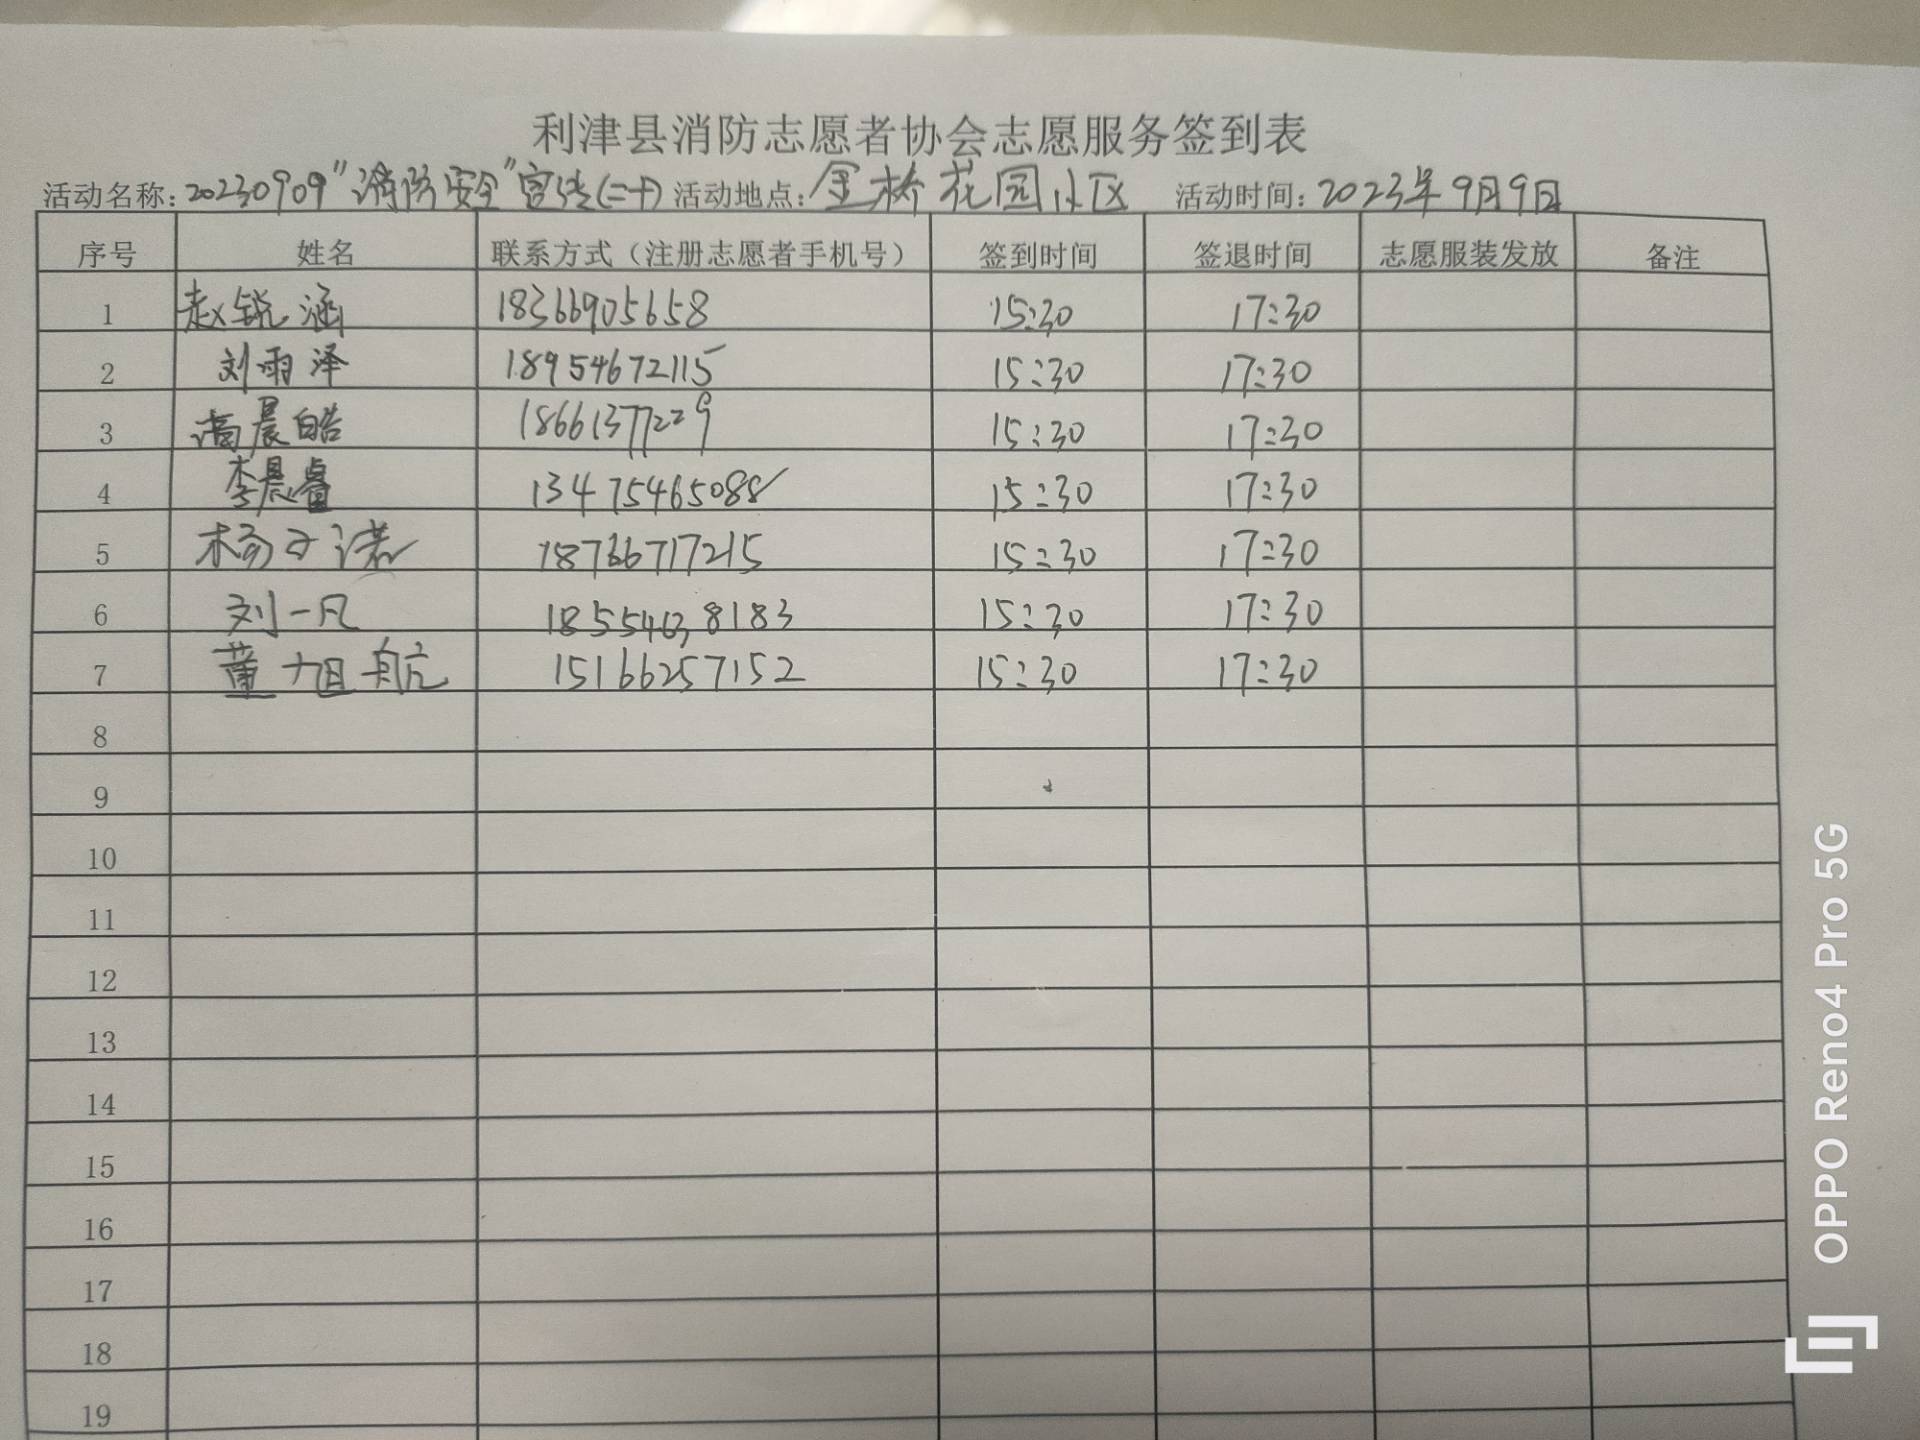 利津县消防志愿者协会志愿服务签到表
活动名称：20230909"消防安全"宣传(二十) 活动地点：金桥花园小区 活动时间：2023年9月9日
序号 姓名 联系方式（注册志愿者手机号） 签到时间 签退时间 志愿服装发放 备注
1 赵锐涵 18366905658 15:30 17:30
2 刘雨泽 18954672115 15:30 17:30
3 晨皓 18661377229 15:30 17:30
4 李晨睿 13475465088 15:30 17:30
5 杨子诺 18766717215 15:30 17:30
6 刘一凡 18554638183 15:30 17:30
7 董旭航 15166257152 15:30 17:30
8
9
10
11
12
13
14
15
16
17
18
19
OPPO Reno4 Pro 5G